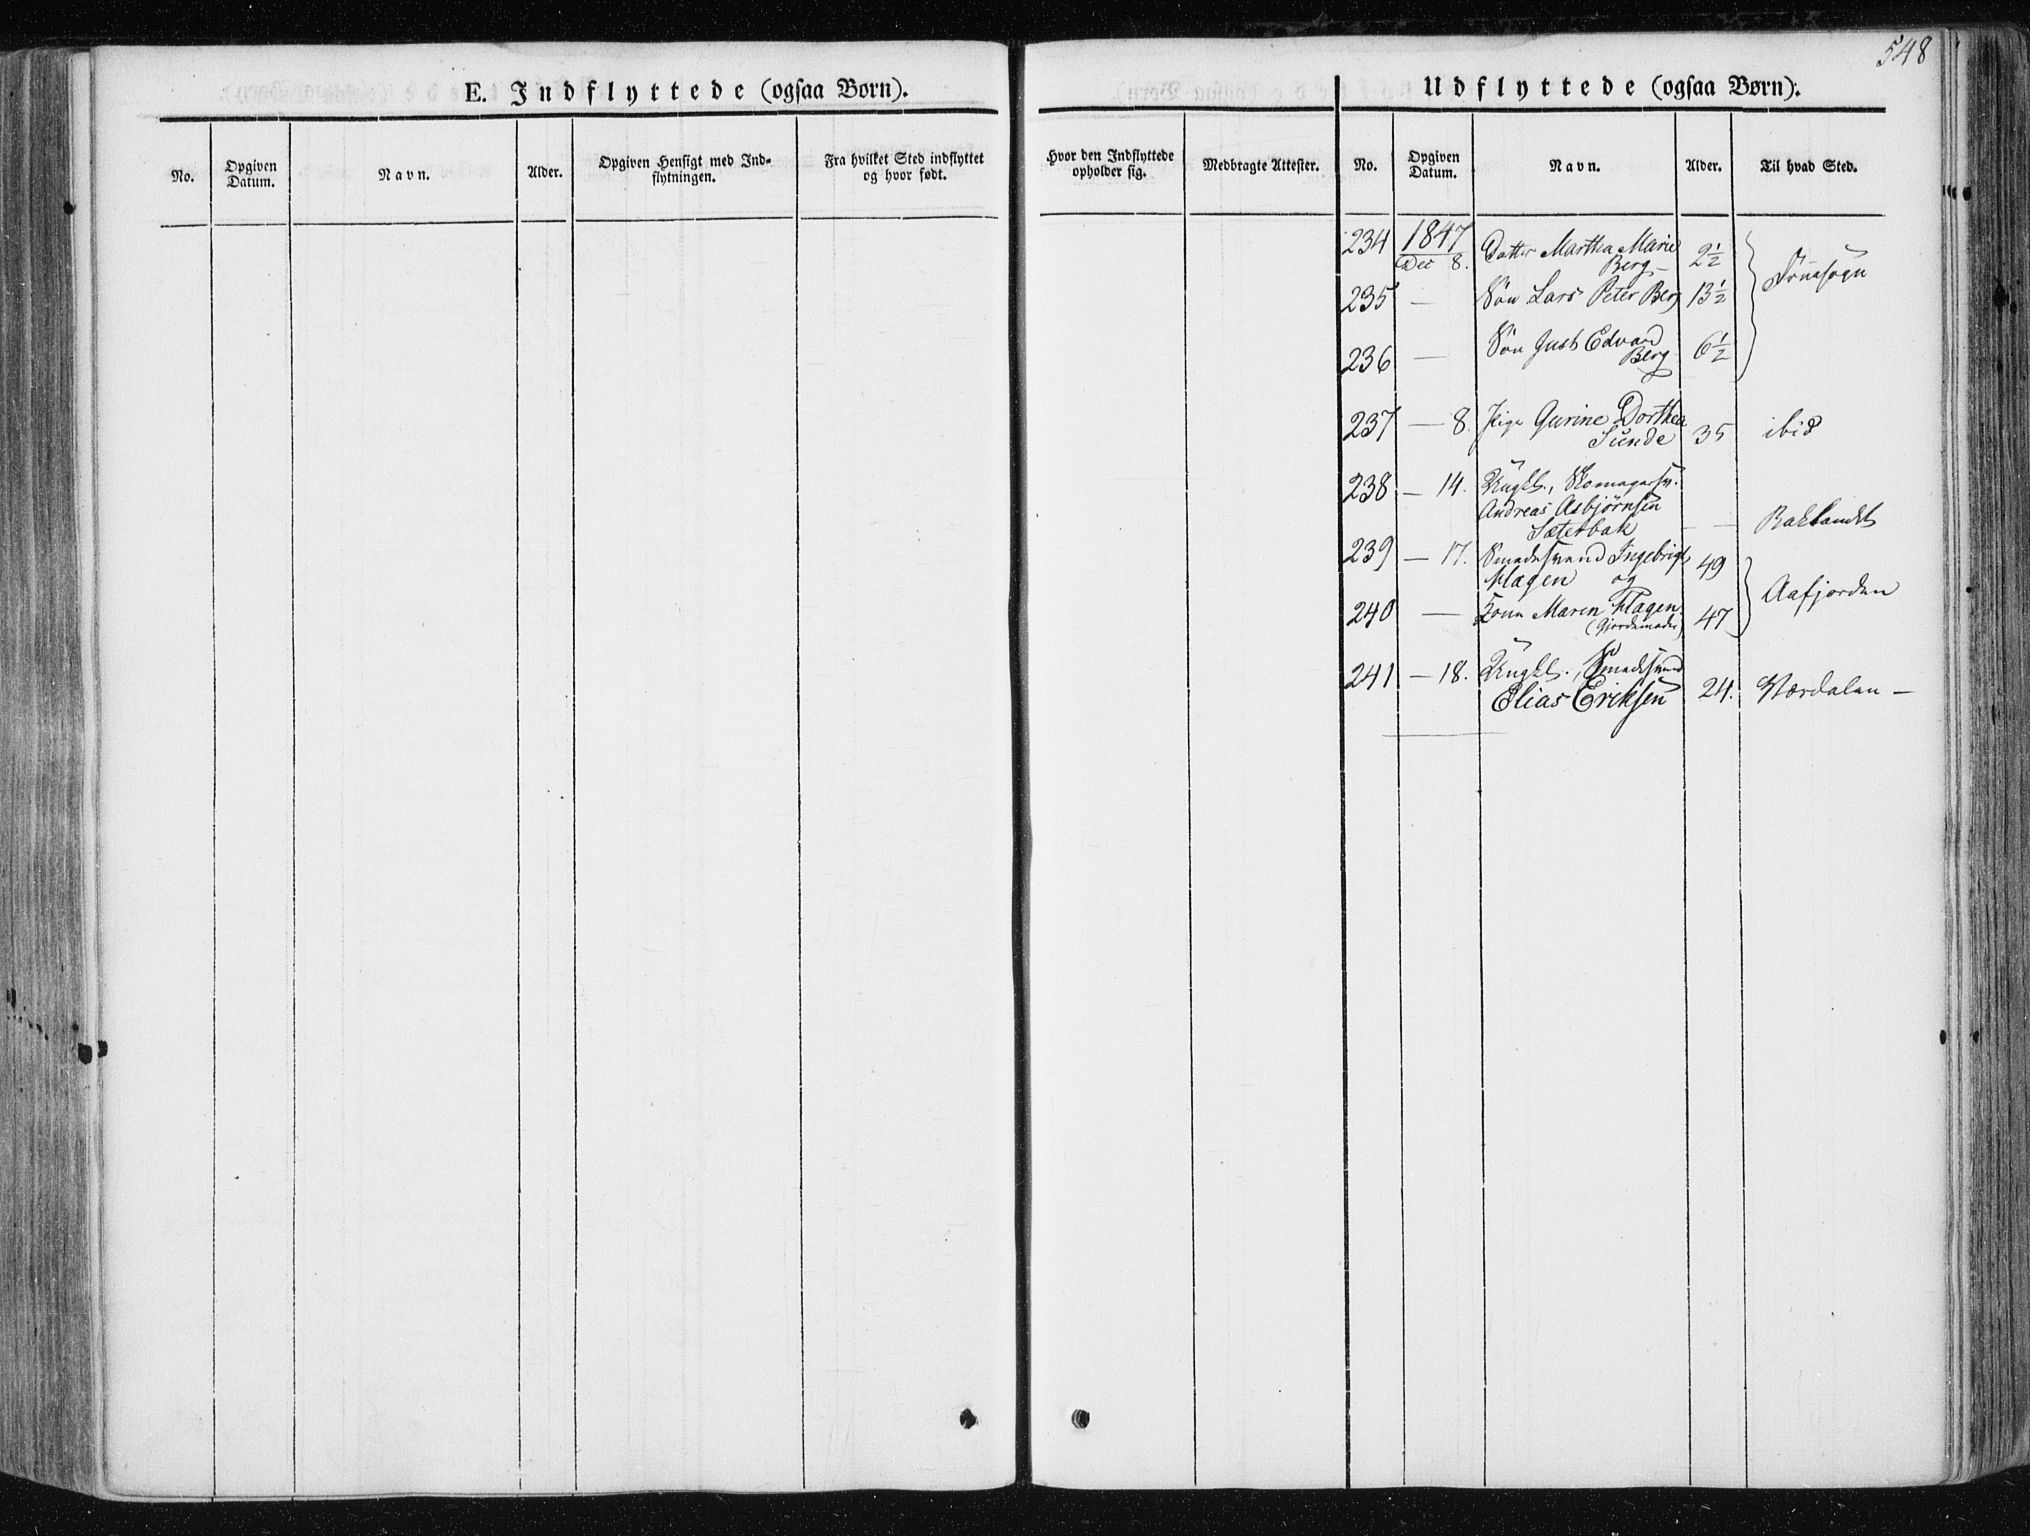 548
E. Indflyttede (ogsaa Børn).
No.
Opgiven
Datum.
Navn.
Alder.
Opgiven Hensigt med Ind-
flytningen.
Fra hvilket Sted indflyttet
og hvor født.
Hvor den Indflyttede
opholder sig.
Medbragte Attester.
Udflyttede (ogsaa Børn).
No.
Opgiven
Datum.
Navn.
Alder.
Til hvad Sted.
234 1847 Datter Martha Marie 2½
Dec 8. Berg
235 — Søn Lars Peter Berg 13½
236 — Søn Just Edvard 6½
Berg
237 — 8. Pige Gurine Dorthea
Sunde 35 ibid
238 — 14. Ungk., Skomagersv.
Andreas Asbjørnsen
Sæterbak — — Baklandet
239 — 17. Smedesvend Ingebrigt 49
Hagen og
Aafjorden
240 — Kone Maren Hagen 47
(Gjordemoder)
241 — 18. Ungk., Smedsvend
Elias Eriksen 24. Værdalen —